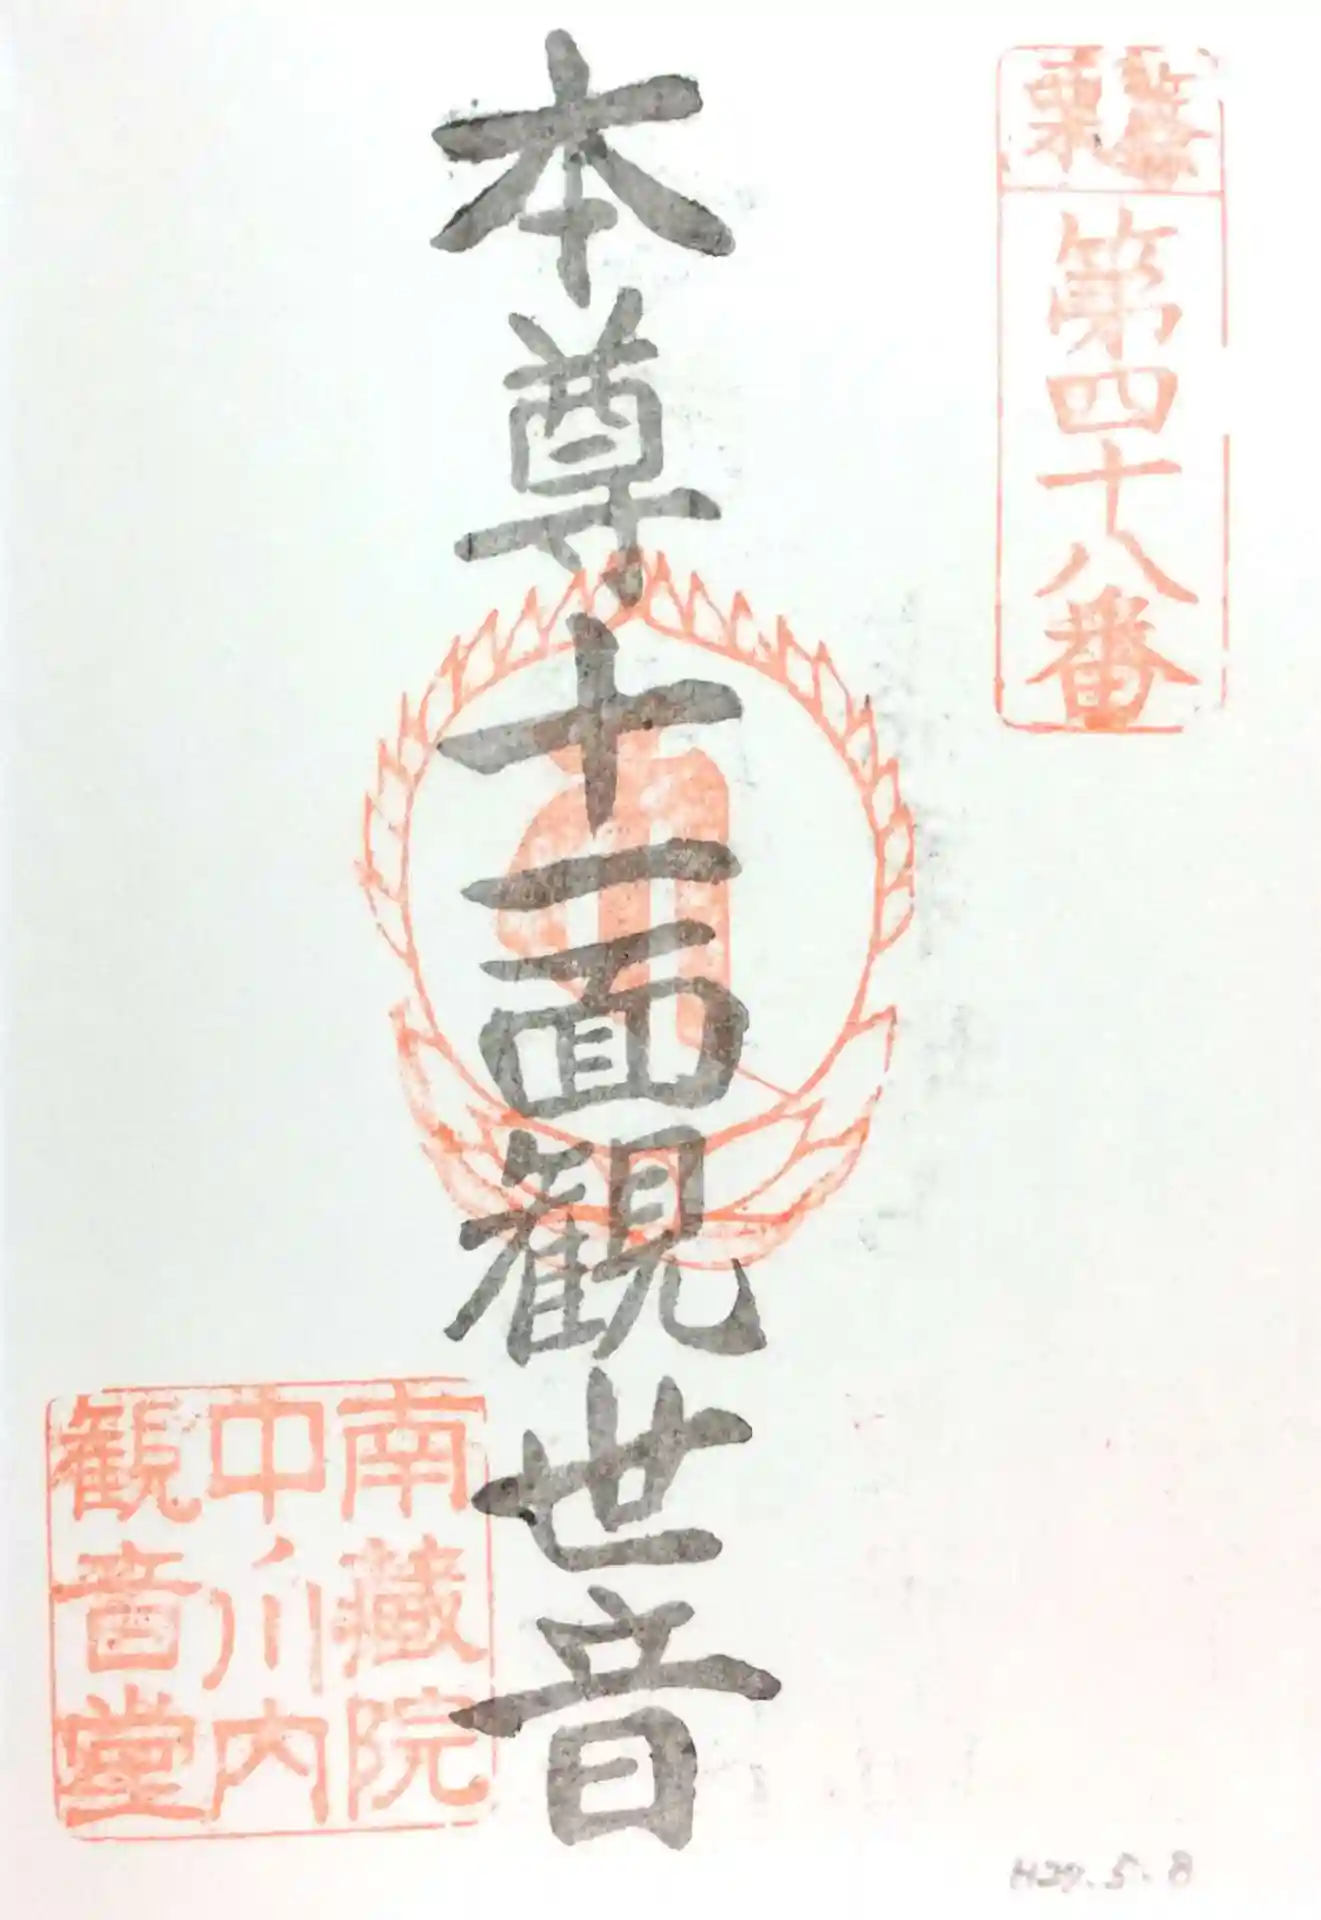 篠栗
第四十八番
本尊十一面観世音
南蔵院
中ノ川内
観音堂
H29.5.8